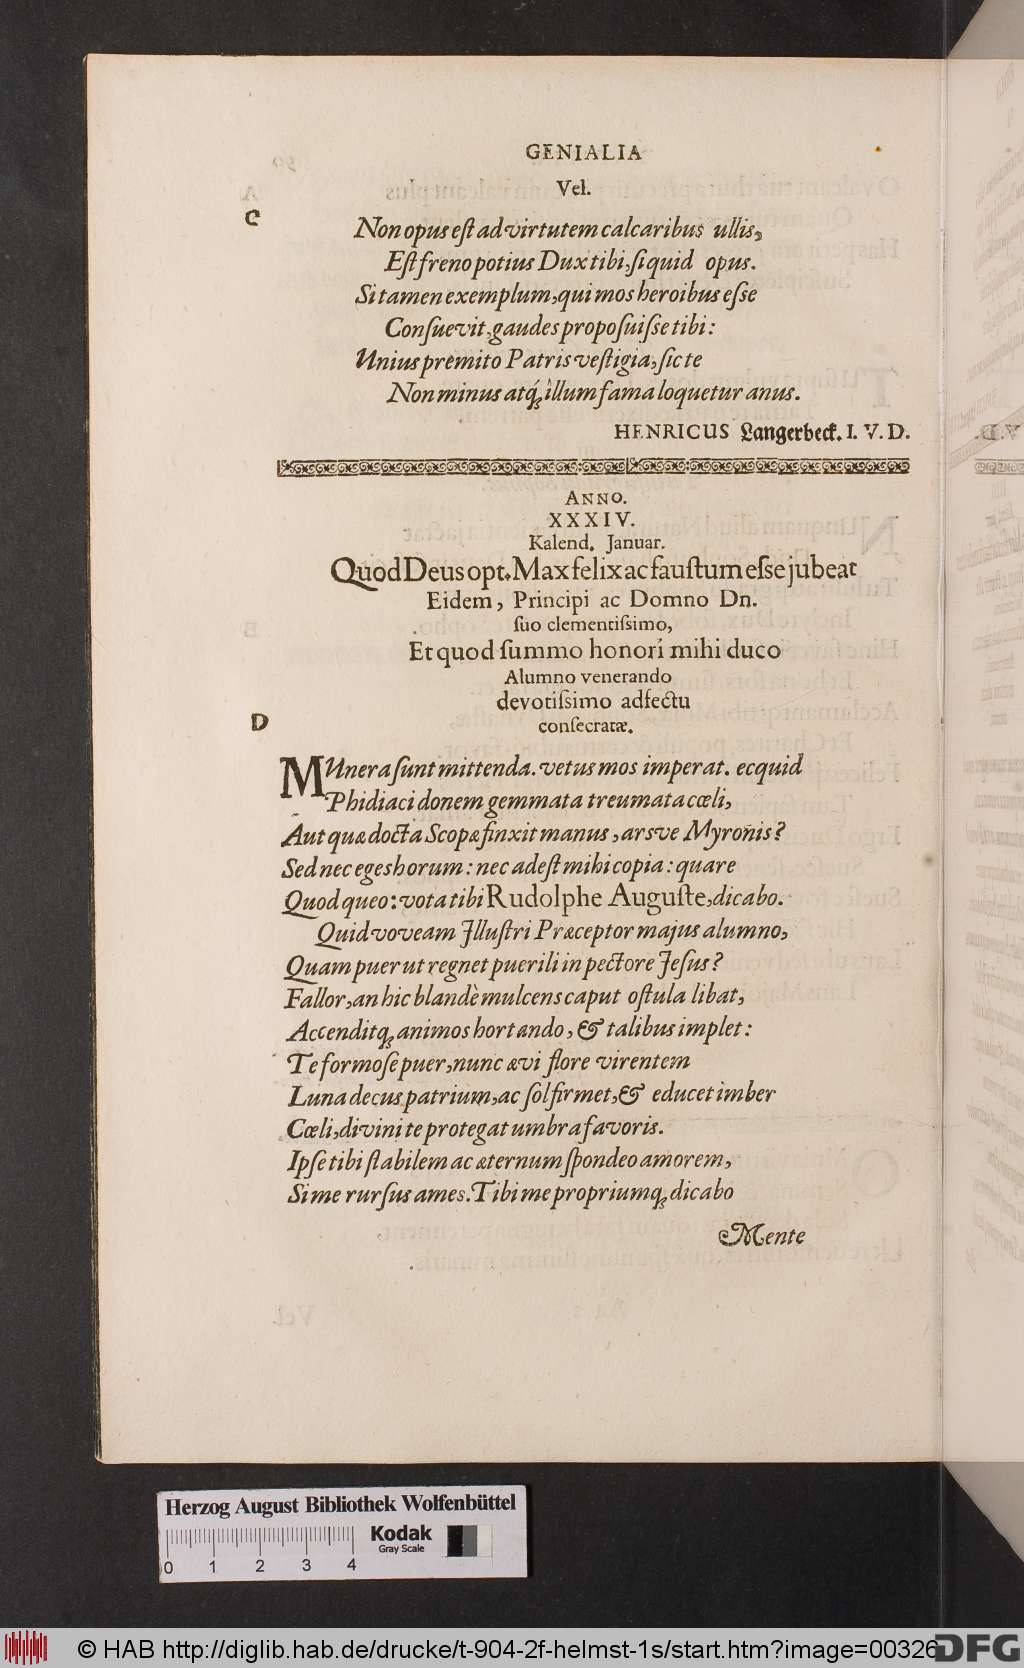 GENIALIA
Vel.
C
Non opus est ad virtutem calcaribus ullis,
Est freno potius Dux tibi, si quid opus.
Si tamen exemplum, qui mos heroibus esse
Consuevit, gaudes proposuisse tibi:
Unius premito Patris vestigia, sic te
Non minus atq́; illum fama loquetur anus.
HENRICUS Langerbeck. I. V. D.
ANNO.
XXXIV.
Kalend. Januar.
Quod Deus opt. Max felix ac faustum esse jubeat
Eidem, Principi ac Domno Dn.
suo clementissimo,
Et quod summo honori mihi duco
Alumno venerando
devotissimo adfectu
D
consecratæ.
MUnera sunt mittenda. vetus mos imperat. ecquid
Phidiaci donem gemmata treumata cœli,
Aut quæ docta Scopæ finxit manus, arsve Myronis?
Sed nec eges horum: nec adest mihi copia: quare
Quod queo: vota tibi Rudolphe Auguste, dicabo.
Quid voveam Illustri Præceptor majus alumno,
Quam puer ut regnet puerili in pectore Jesus?
Fallor, an hic blandè mulcens caput ostula libat,
Accenditq; animos hortando, & talibus implet:
Te formose puer, nunc ævi flore virentem
Luna decus patrium, ac sol firmet, & educet imber
Cœli, divini te protegat umbra favoris.
Ipse tibi stabilem ac æternum spondeo amorem,
Si me rursus ames. Tibi me propriumq; dicabo
Mente
Herzog August Bibliothek Wolfenbüttel
Kodak
Gray Scale
0 1 2 3 4
© HAB http://diglib.hab.de/drucke/t-904-2f-helmst-1s/start.htm?image=00326
DFG